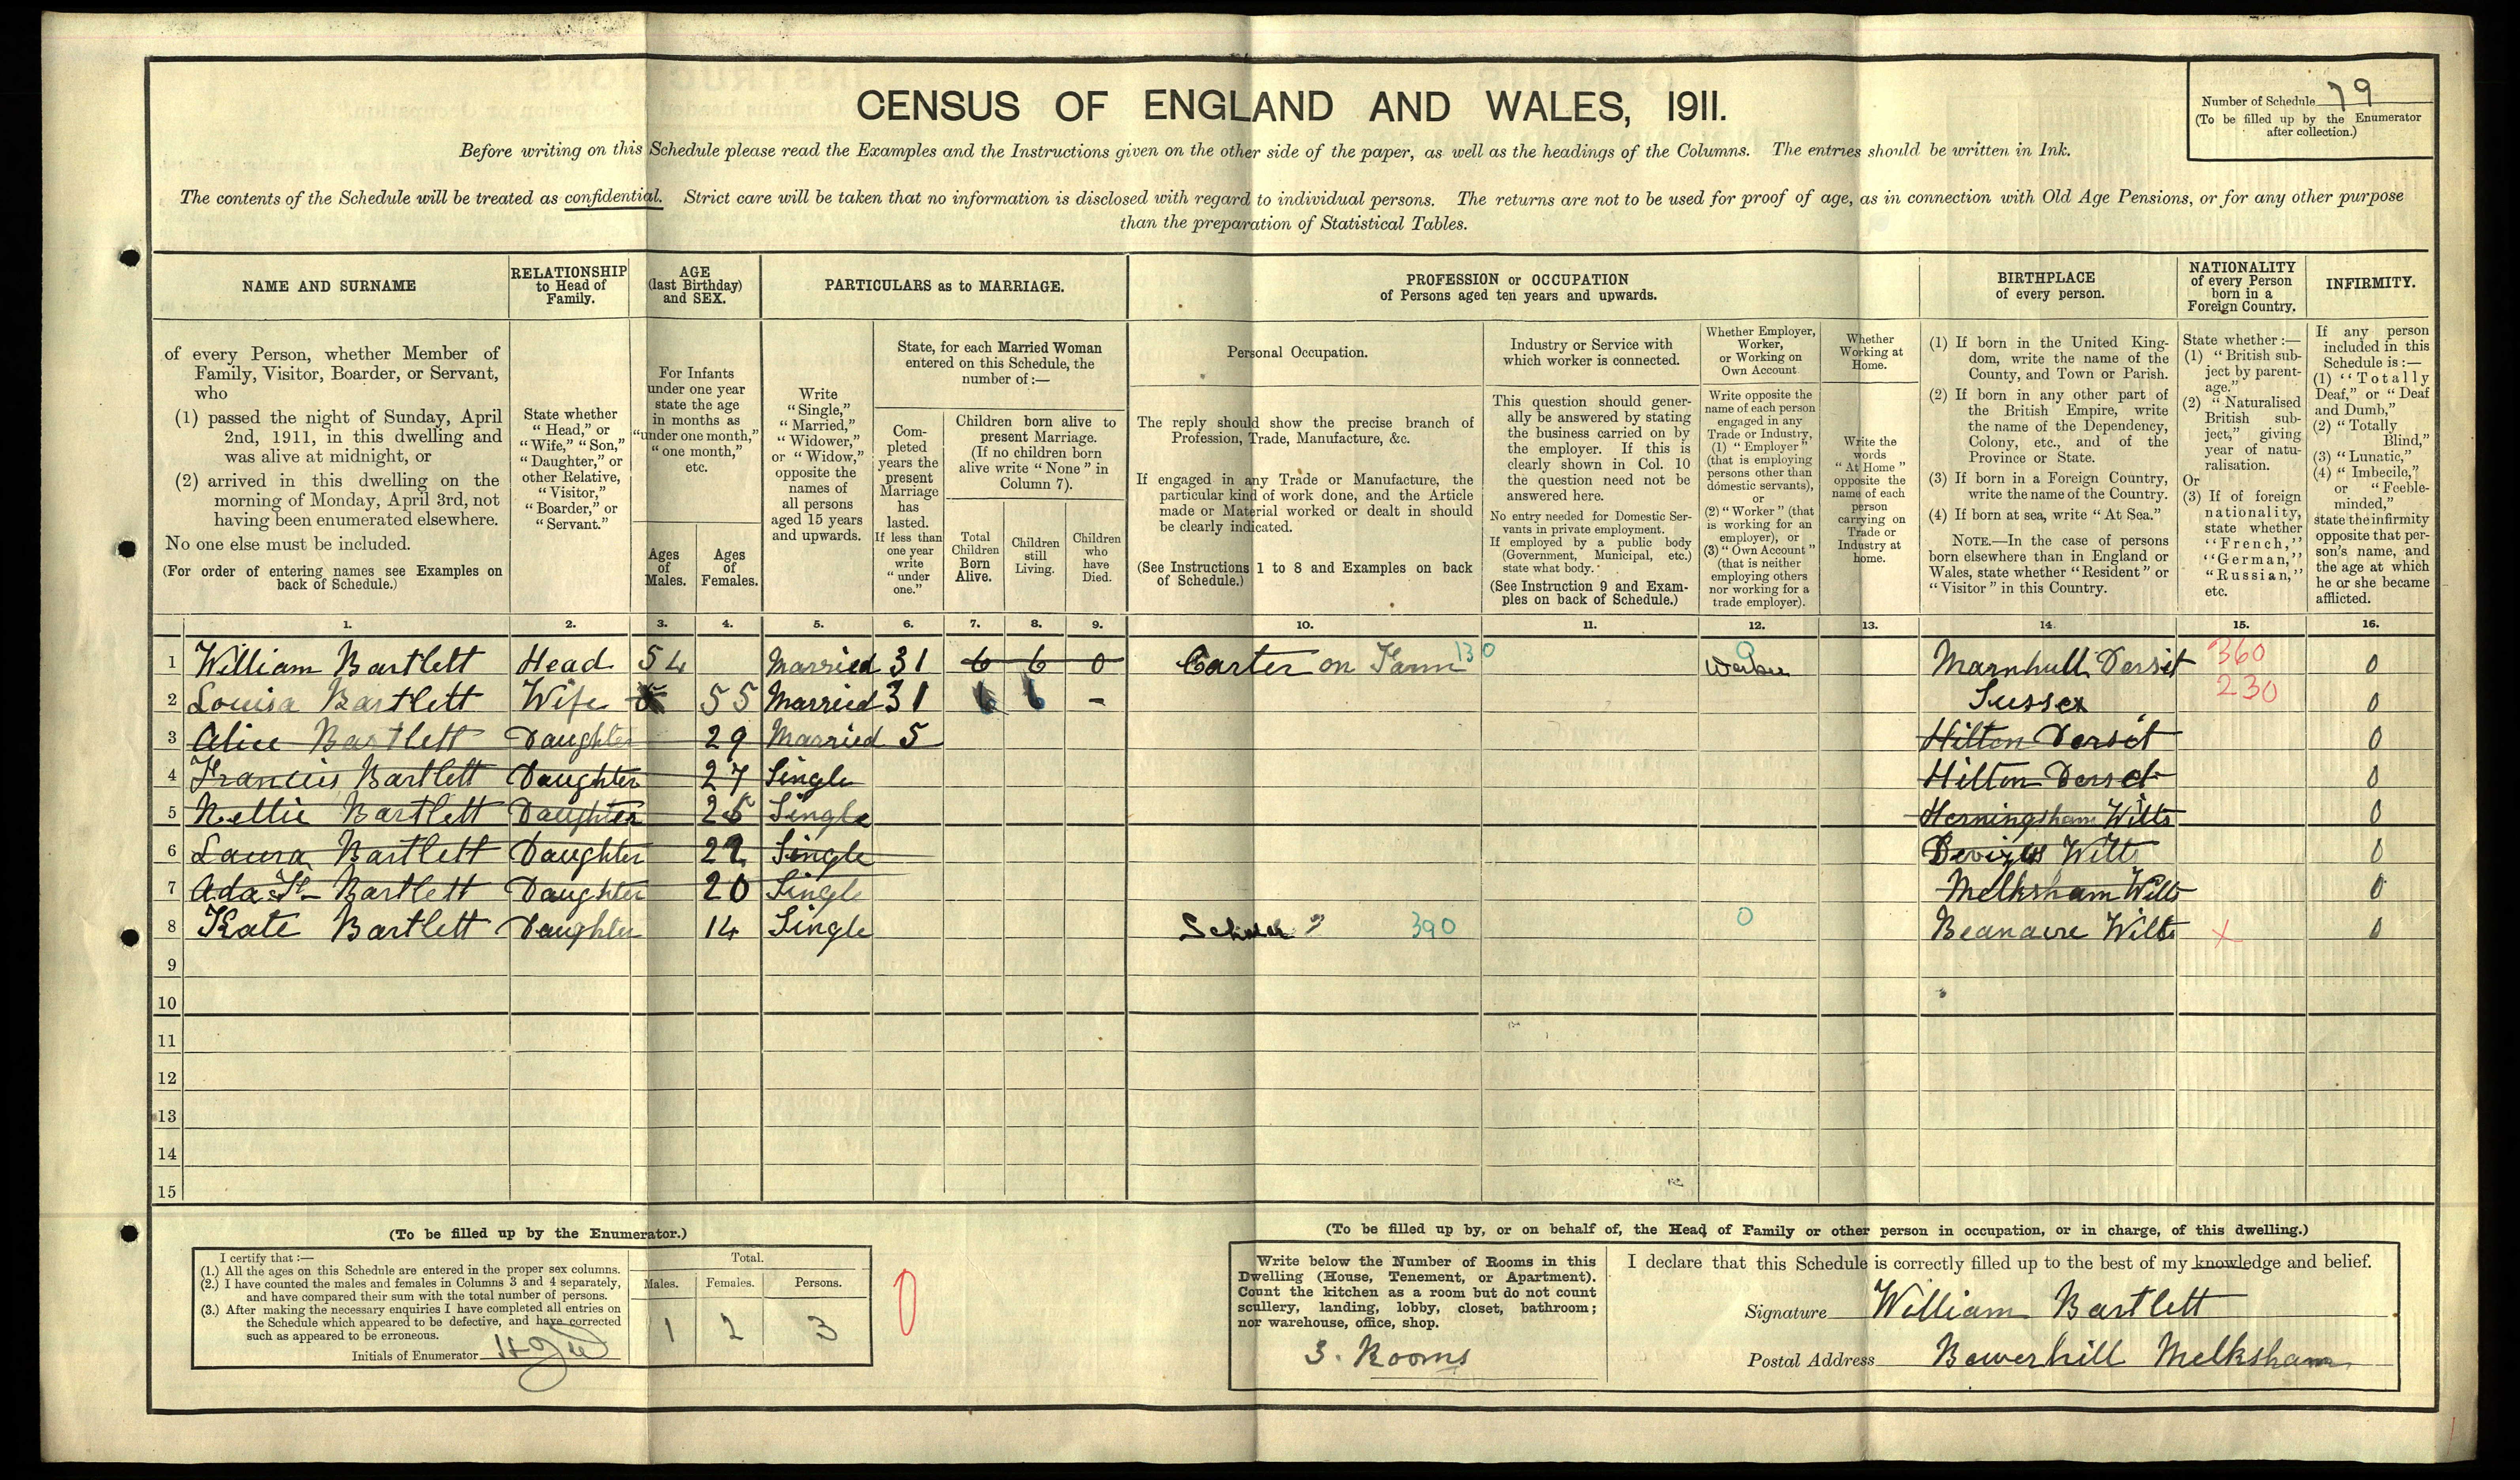 CENSUS OF ENGLAND AND WALES, 1911.
Number of Schedule 79
(To be filled up by the Enumerator
after collection.)
Before writing on this Schedule please read the Examples and the Instructions given on the other side of the paper, as well as the headings of the Columns. The entries should be written in Ink.
The contents of the Schedule will be treated as confidential. Strict care will be taken that no information is disclosed with regard to individual persons. The returns are not to be used for proof of age, as in connection with Old Age Pensions, or for any other purpose
than the preparation of Statistical Tables.
NAME AND SURNAME
of every Person, whether Member of
Family, Visitor, Boarder, or Servant,
who
(1) passed the night of Sunday, April
2nd, 1911, in this dwelling and
was alive at midnight, or
(2) arrived in this dwelling on the
morning of Monday, April 3rd, not
having been enumerated elsewhere.
No one else must be included.
(For order of entering names see Examples on
back of Schedule.)
RELATIONSHIP
to Head of
Family.
State whether
"Head," or
"Wife," "Son,"
"Daughter," or
other Relative,
"Visitor,"
"Boarder," or
"Servant."
AGE
(last Birthday)
and SEX.
For Infants
under one year
state the age
in months as
"under one month,"
"one month,"
etc.
Ages
of
Males.
Ages
of
Females.
PARTICULARS as to MARRIAGE.
Write
"Single,"
"Married,"
"Widower,"
or "Widow,"
opposite the
names of
all persons
aged 15 years
and upwards.
State, for each Married Woman
entered on this Schedule, the
number of:—
Com-
pleted
years the
present
Marriage
has
lasted.
If less than
one year
write
"under
one."
Children born alive to
present Marriage.
(If no children born
alive write "None" in
Column 7).
Total
Children
Born
Alive.
Children
still
Living.
Children
who
have
Died.
PROFESSION or OCCUPATION
of Persons aged ten years and upwards.
Personal Occupation.
The reply should show the precise branch of
Profession, Trade, Manufacture, &c.
If engaged in any Trade or Manufacture, the
particular kind of work done, and the Article
made or Material worked or dealt in should
be clearly indicated.
(See Instructions 1 to 8 and Examples on back
of Schedule.)
Industry or Service with
which worker is connected.
This question should gener-
ally be answered by stating
the business carried on by
the employer. If this is
clearly shown in Col. 10
the question need not be
answered here.
No entry needed for Domestic Ser-
vants in private employment.
If employed by a public body
(Government, Municipal, etc.)
state what body.
(See Instruction 9 and Exam-
ples on back of Schedule.)
Whether Employer,
Worker,
or Working on
Own Account
Write opposite the
name of each person
engaged in any
Trade or Industry,
(1) "Employer"
(that is employing
persons other than
domestic servants),
or
(2) "Worker" (that
is working for an
employer), or
(3) "Own Account"
(that is neither
employing others
nor working for a
trade employer).
Whether
Working at
Home.
Write the
words
"At Home"
opposite the
name of each
person
carrying on
Trade or
Industry at
home.
BIRTHPLACE
of every person.
(1) If born in the United King-
dom, write the name of the
County, and Town or Parish.
(2) If born in any other part of
the British Empire, write
the name of the Dependency,
Colony, etc., and of the
Province or State.
(3) If born in a Foreign Country,
write the name of the Country.
(4) If born at sea, write "At Sea."
NOTE.—In the case of persons
born elsewhere than in England or
Wales, state whether "Resident" or
"Visitor" in this Country.
NATIONALITY
of every Person
born in a
Foreign Country.
State whether:—
(1) "British sub-
ject by parent-
age."
(2) "Naturalised
British sub-
ject," giving
year of natu-
ralisation.
Or
(3) If of foreign
nationality,
state whether
"French,"
"German,"
"Russian,"
etc.
INFIRMITY.
If any person
included in this
Schedule is:—
(1) "Totally
Deaf," or "Deaf
and Dumb,"
(2) "Totally
Blind,"
(3) "Lunatic,"
(4) "Imbecile,"
or "Feeble-
minded,"
state the infirmity
opposite that per-
son's name, and
the age at which
he or she became
afflicted.
1. 2. 3. 4. 5. 6. 7. 8. 9. 10. 11. 12. 13. 14. 15. 16.
1 William Bartlett Head 54 Married 31 6 6 0 Carter on Farm 130 0 Worker Marnhull Dorset 360 0
2 Louisa Bartlett Wife 55 Married 31 6 6 - Sussex 230 0
3 Alice Bartlett Daughter 29 Married 5 Hilton Dorset 0
4 Francis Bartlett Daughter 27 Single Hilton Dorset 0
5 Nellie Bartlett Daughter Single Horningsham Wilts 0
6 Laura Bartlett Daughter 22 Single Devizes Wilts 0
7 Ada Bartlett Daughter 20 Single Melksham Wilts 0
8 Kate Bartlett Daughter 14 Single 390 0 Beanacre Wilts X 0
9
10
11
12
13
14
15
(To be filled up by the Enumerator.)
I certify that:—
(1.) All the ages on this Schedule are entered in the proper sex columns.
(2.) I have counted the males and females in Columns 3 and 4 separately,
and have compared their sum with the total number of persons.
(3.) After making the necessary enquiries I have completed all entries on
the Schedule which appeared to be defective, and have corrected
such as appeared to be erroneous.
Initials of Enumerator
Total.
Males. Females. Persons.
1 2 3
0
(To be filled up by, or on behalf of, the Head of Family or other person in occupation, or in charge, of this dwelling.)
Write below the Number of Rooms in this
Dwelling (House, Tenement, or Apartment).
Count the kitchen as a room but do not count
scullery, landing, lobby, closet, bathroom;
nor warehouse, office, shop.
3. Rooms
I declare that this Schedule is correctly filled up to the best of my knowledge and belief.
Signature William Bartlett
Postal Address Bowerhill Melksham